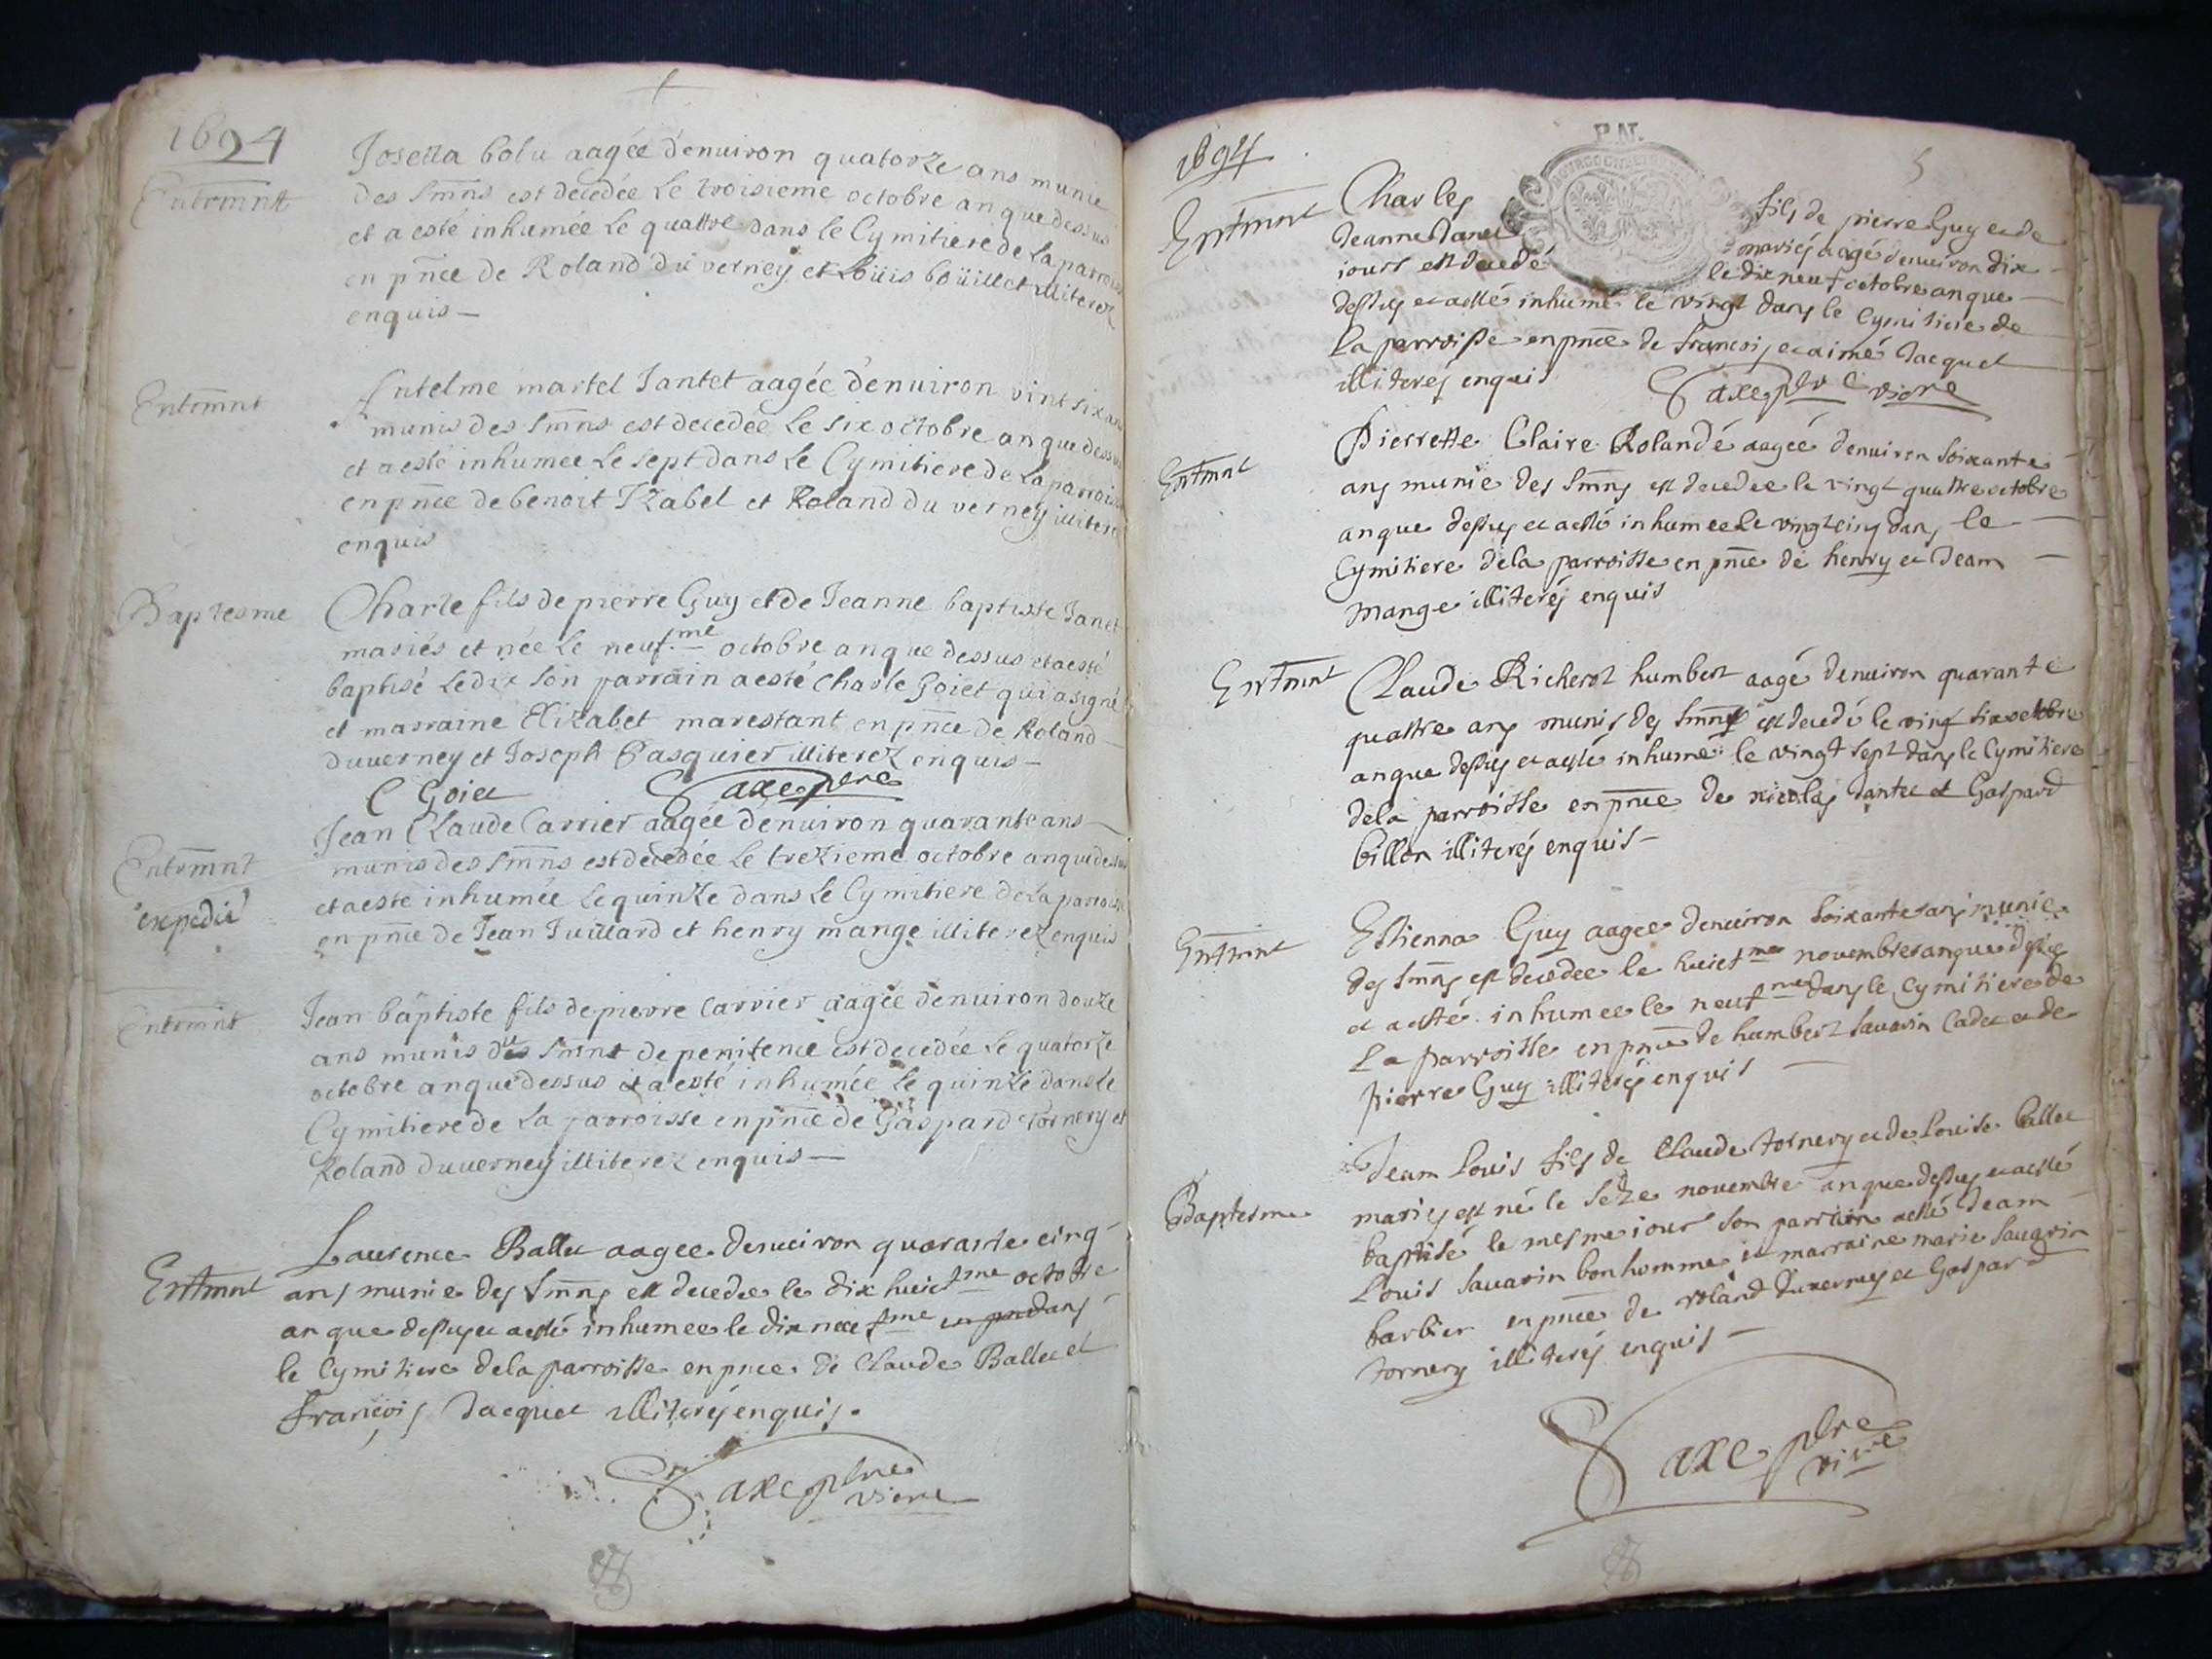 1694
Entrmnt
Josetta bolu aagée denuiron quatorze ans munie
des Smns est decedée Le troisieme octobre an que dessus
et a esté inhumée Le quattre dans le Cymitiere de La parrois
en pnce de Roland du verney et Loüis boüillet illiterez
enquis —
Entrmnt
Antelme martel Jantet aagée denuiron vint six ans
munis des Smns est decedée Le six octobre an que dessus
et a esté inhumee Le sept dans Le Cymitiere de La parroisse
en pnce de benoit Izabel et Roland du verney illiterez
enquis
Baptesme
Charle fils de pierre Guy et de Jeanne baptiste Janet
mariés et née Le neuf.me octobre an que dessus et a esté
baptisé Le dix son parrain a esté Charle Goiet qui a signé
et marraine Elizabet marestant en pnce de Roland
duverney et Joseph Pasquier illiterez enquis —
C Goiet Saxe pbre
Jean Claude Carrier aagée denuiron quarante ans —
Entrmnt
munis des Smns est decedée Le trezieme octobre an que dessus
expedié
et a esté inhumée Le quinze dans Le Cymitiere de La parroisse
en pnce de Jean Juillard et henry mange illiterez enquis
Entrmnt
Jean baptiste fils de pierre Carrier aagée denuiron douze
ans munis du Smnt de penitence est decedée Le quatorze
octobre an que dessus et a esté inhumée Le quinze dans Le
Cymitiere de La parroisse en pnce de Gaspard tornery et
Roland duverney illiterez enquis —
Laurence Ballet aagee denuiron quarante cinq
Entrmnt
ans munie des Smns est decedee le dix huict me octobre
an que dessus et a esté inhumee le dix neuf me en pnce dans
le Cymitiere de la parroisse en pnce de Claude Ballet et
françois Jacquet illiterés enquis.
Saxe pbre
vicre
1694
P.N.
5
Entrmnt
Charles fils de pierre Guy et de
Jeanne Janet mariés aagé denuiron dix
iours est decedé le dix neuf octobre an que
dessus et a esté inhumé le vingt dans le Cymitiere de
la parroisse en pnce de francois et aimé Jacquet
illiterés enquis
Saxe pbre vicre
Entrmnt
Pierrette Claire Rolandé aagée denuiron soixante
ans munie des Smns est decedee le vingt quattre octobre
an que dessus et a esté inhumee le vingt cinq dans le
Cymitiere de la parroisse en pnce de henry et Jean
mange illiterés enquis
Entrmnt
Claude Richerot humbert aagé denuiron quarante
quattre ans munis des Smns est decedé le vint six octobre
an que dessus et a esté inhumé le vingt sept dans le Cymitiere
de la parroisse en pnce de nicolas Jantet et Gaspard
billon illiterés enquis —
Entrmnt
Estienna Guy aagee denuiron soixante ans munie
des Smns est decedee le huict me novembre an que dessus
et a esté inhumee le neuf me dans le Cymitiere de
la parroisse en pnce de humbert Sauarin Cadet et de
pierre Guy illiterés enquis —
Baptesme
Jean Louis fils de Claude tornery et de Louise Ballet
mariés est né le seze novembre an que dessus et a esté
baptisé le mesme iour son parrain a esté Jean
Louis Sauarin bonhomme et marraine marie Sauarin
barbier en pnce de roland duverney et Gaspard
tornery illiterés enquis —
Saxe pbre
vicre